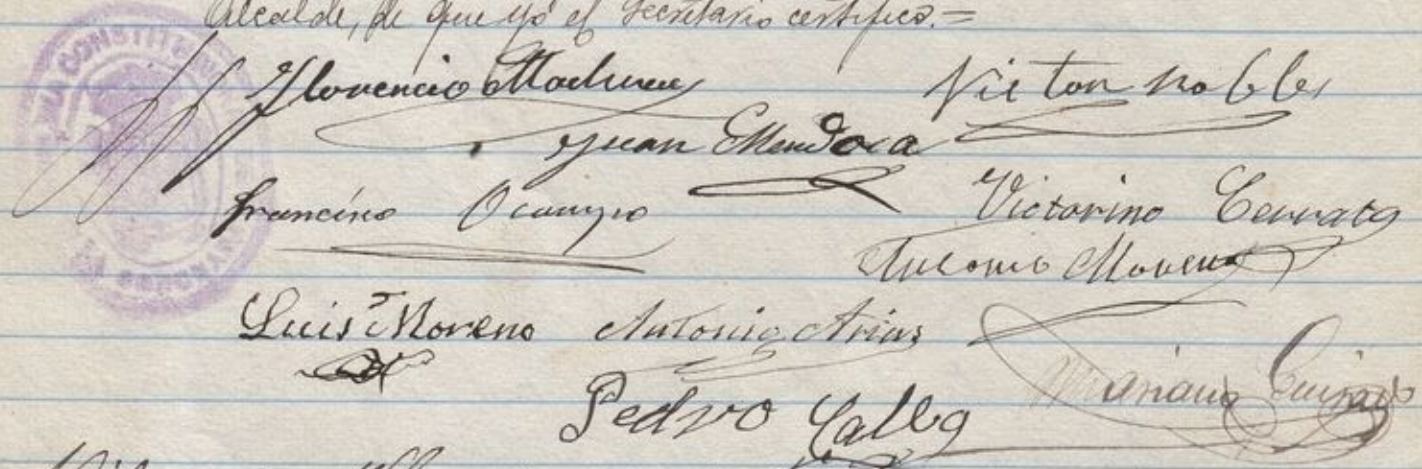 Alcalde, de que yo el Secretario certifico.=
Florencio
Victor Robles
Juan Mendoza
Francisco Ocampo
Victorino Cerrato
Antonio Moreno
Luis Moreno Antonio Arias
Mariano
Pedro Calleja
CONSTITU